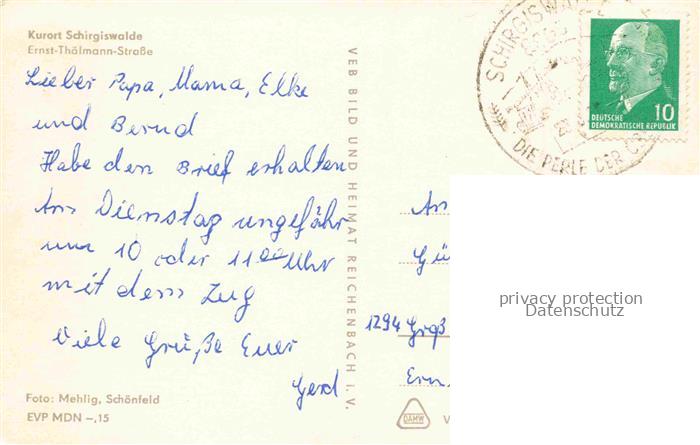 Kurort Schirgiswalde
Ernst-Thälmann-Straße
Lieber Papa, Mama, Elke
und Bernd
Habe den Brief erhalten
Am Dienstag ungefähr
um 10 oder 11 00 Uhr
mit dem Zug
Viele Grüße Euer
Gerd
Foto: Mehlig, Schönfeld
EVP MDN -,15
VEB BILD UND HEIMAT REICHENBACH I. V.
SCHIRGISWALDE
DIE PERLE DER
10
DEUTSCHE
DEMOKRATISCHE REPUBLIK
An
Gü
1294 Groß
Ern
DAMW
V
privacy protection
Datenschutz